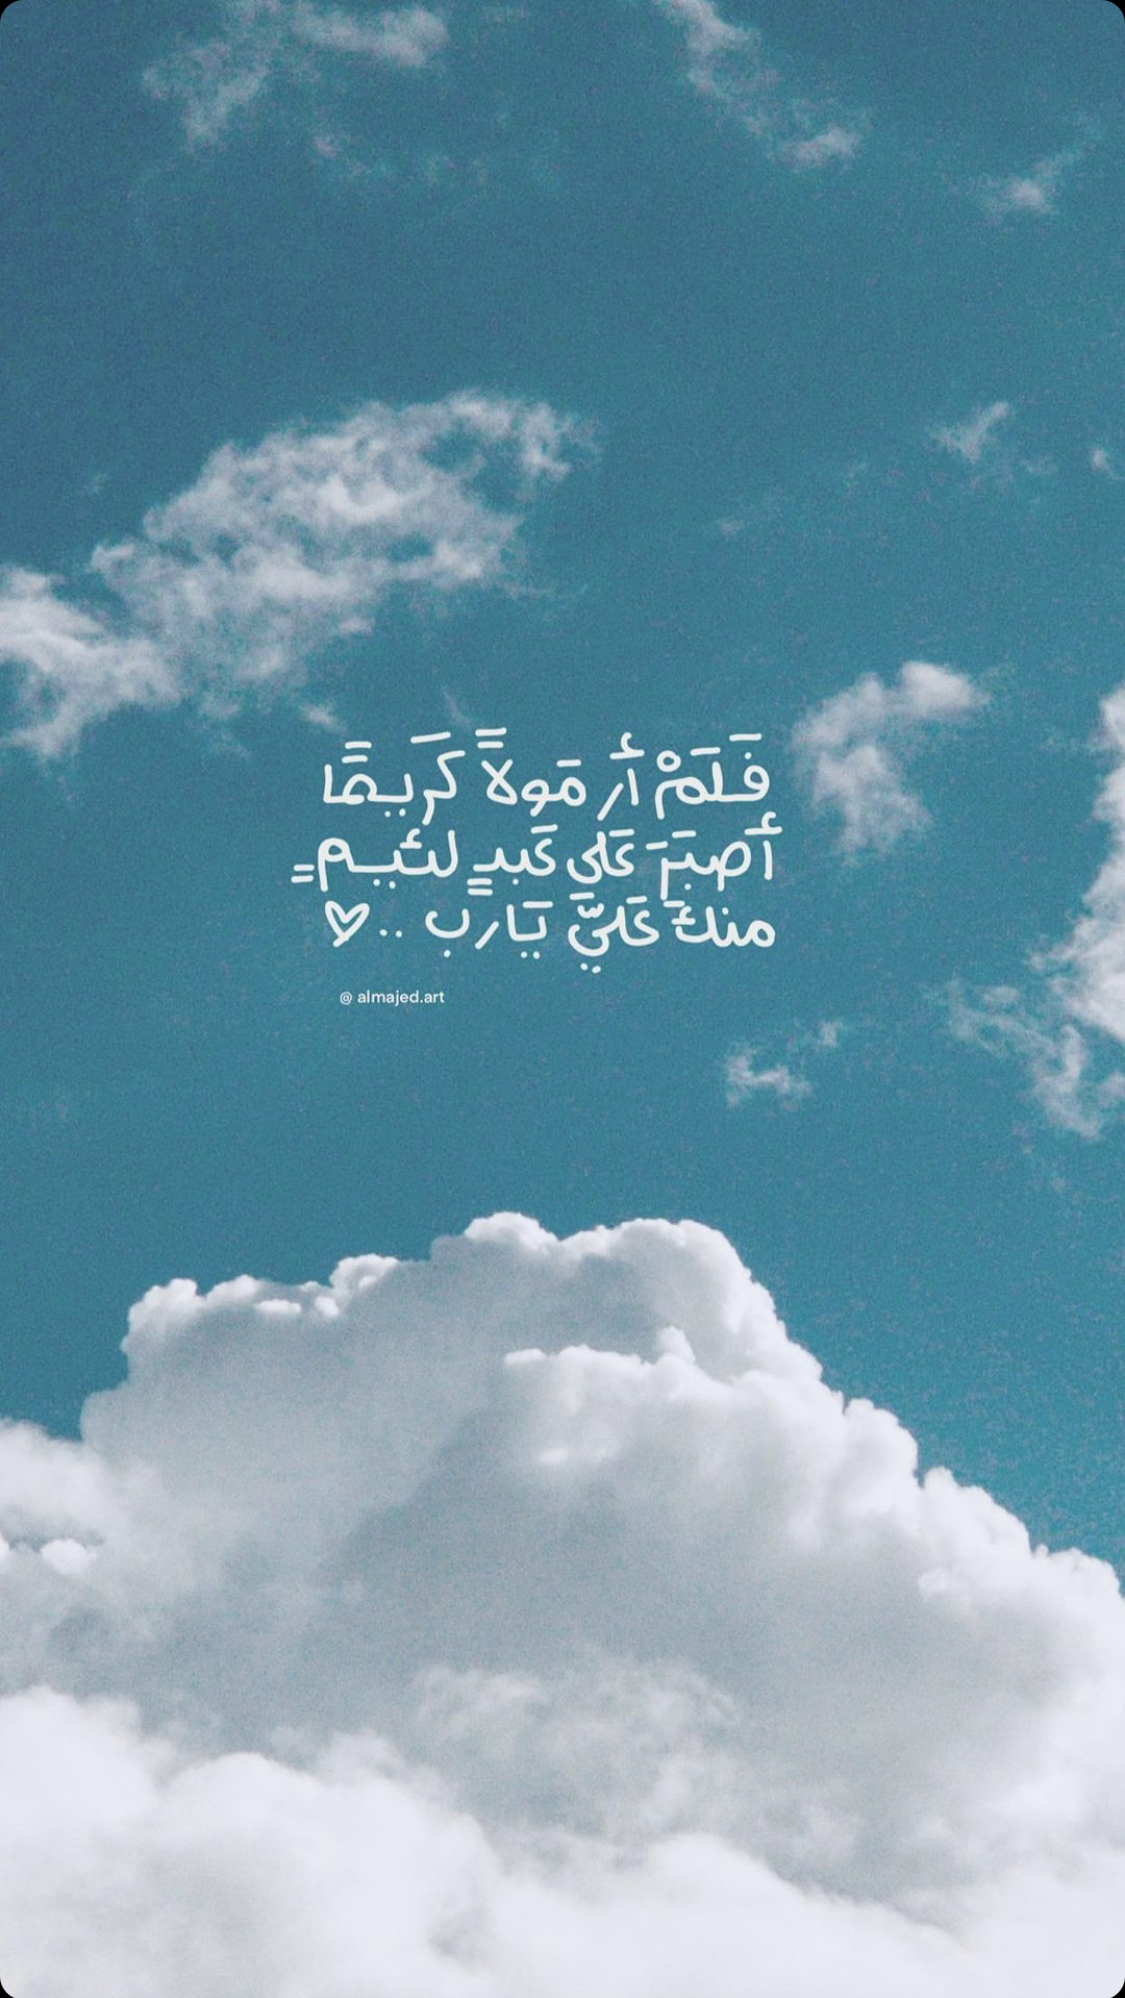 فَلَمْ أَر مَولاً كَريمًا
أَصبَرَ عَلى عَبدٍ لئيمٍ
منكَ عَليَّ يَارَب .. ♡
@ almajed.art